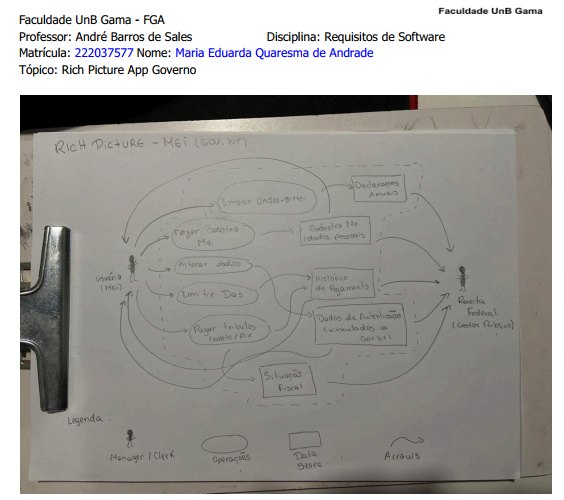 Faculdade UnB Gama
Faculdade UnB Gama - FGA
Professor: André Barros de Sales Disciplina: Requisitos de Software
Matrícula: 222037577 Nome: Maria Eduarda Quaresma de Andrade
Tópico: Rich Picture App Governo
RICH PICTURE - MEI (GOV.BR)
Enviar DASN-SIMEI
Declarações
Anuais
Fazer Cadastro
Mei
Cadastro Mei
(dados pessoais)
Alterar dados
usuário
(Mei)
Emitir Das
Histórico
de Pagamento
Receita
Federal
(Gestor Público)
Pagar tributos
Dados de Autenticação
(vinculados ao
Gov.br)
Situação
Fiscal
Legenda
Manager / Clerk
Operações
Data
Store
Arrows